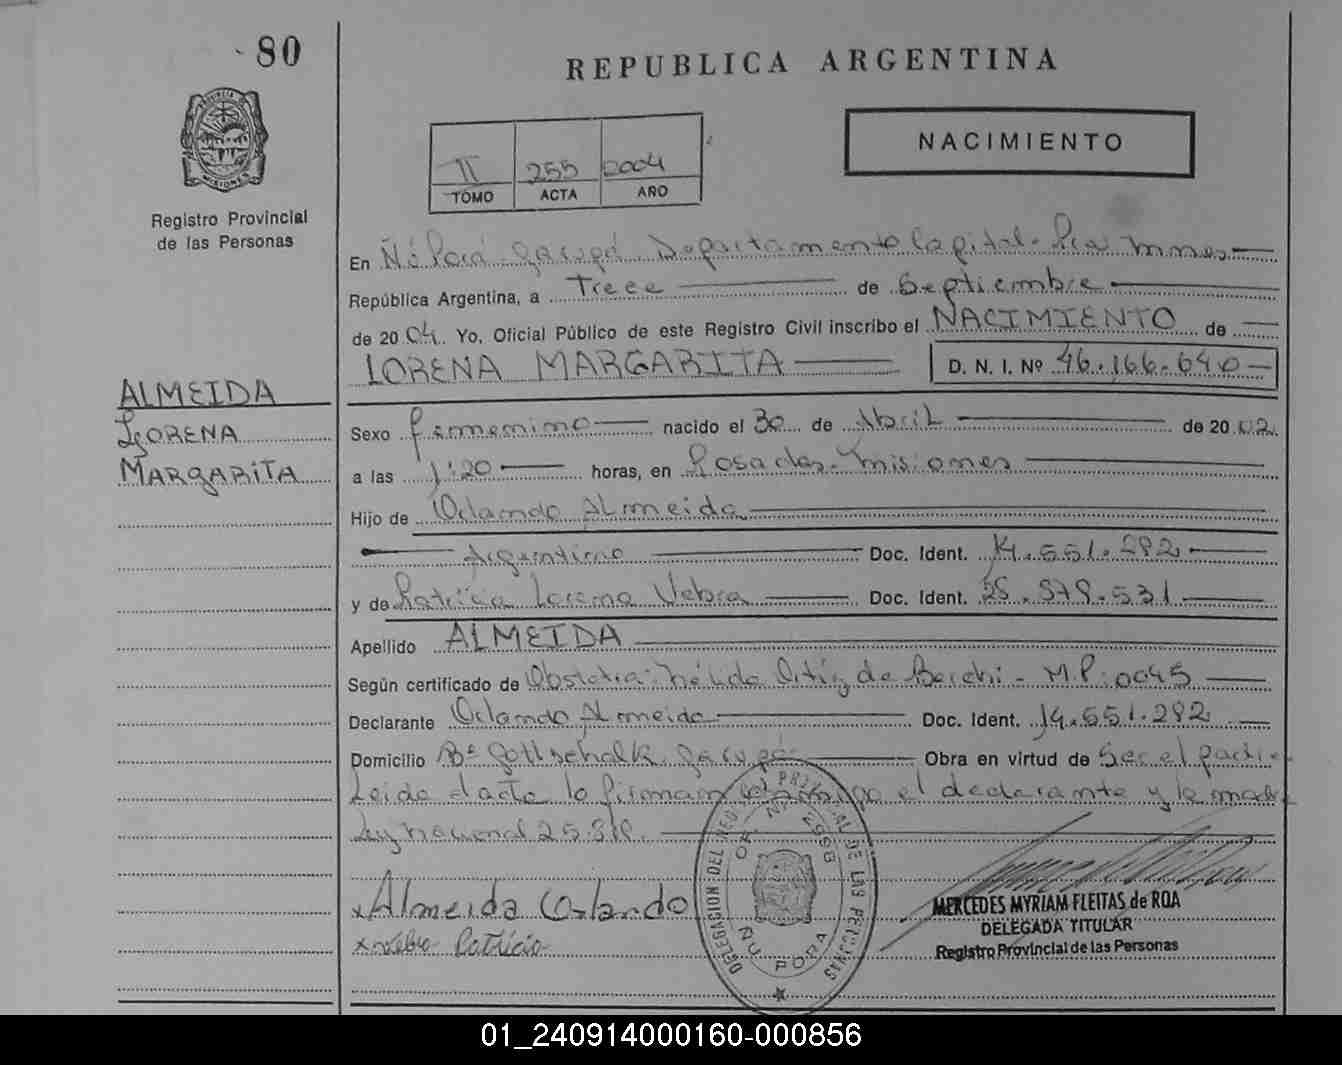 80
REPUBLICA ARGENTINA
PROVINCIA DE
MISIONES
Registro Provincial
de las Personas
II 255 2004
TOMO ACTA AÑO
NACIMIENTO
En Ñú Porá - Garupá. Departamento Capital - Pcia. Mnes
República Argentina, a Trece de Septiembre
de 2004. Yo, Oficial Público de este Registro Civil inscribo el NACIMIENTO de
LORENA MARGARITA D. N. I. Nº 46.166.640
ALMEIDA
LORENA
MARGARITA
Sexo femenino nacido el 30 de Abril de 2002
a las 1:20 horas, en Posadas. Misiones
Hijo de Orlando Almeida
Argentino Doc. Ident. 14.551.292
y de Patricia Lorena Vebra Doc. Ident. 25.979.531
Apellido ALMEIDA
Según certificado de Obstetra: Nélida Ortíz de Berchi - M.P: 0045
Declarante Orlando Almeida Doc. Ident. 14.551.292
Domicilio Bº Gottschalk. Garupá Obra en virtud de Ser el padre
Leida el acta lo firman conmigo el declarante y la madre
Ley nacional
x Almeida Orlando
x Vebra Patricia
DELEGACION DEL REG. PROVINCIAL DE LAS PERSONAS
ÑU PORA
MERCEDES MYRIAM FLEITAS de ROA
DELEGADA TITULAR
Registro Provincial de las Personas
01_240914000160-000856